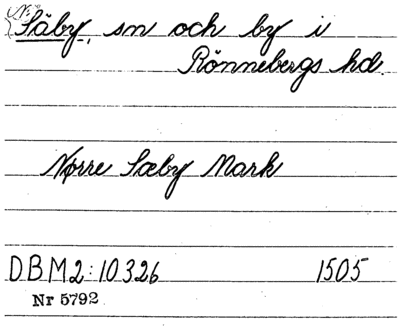 (N:a)
Säby, sn och by i
Rönnebergs hd.
Nørre Sæby Mark
DBM2:10326 1505
Nr 5792